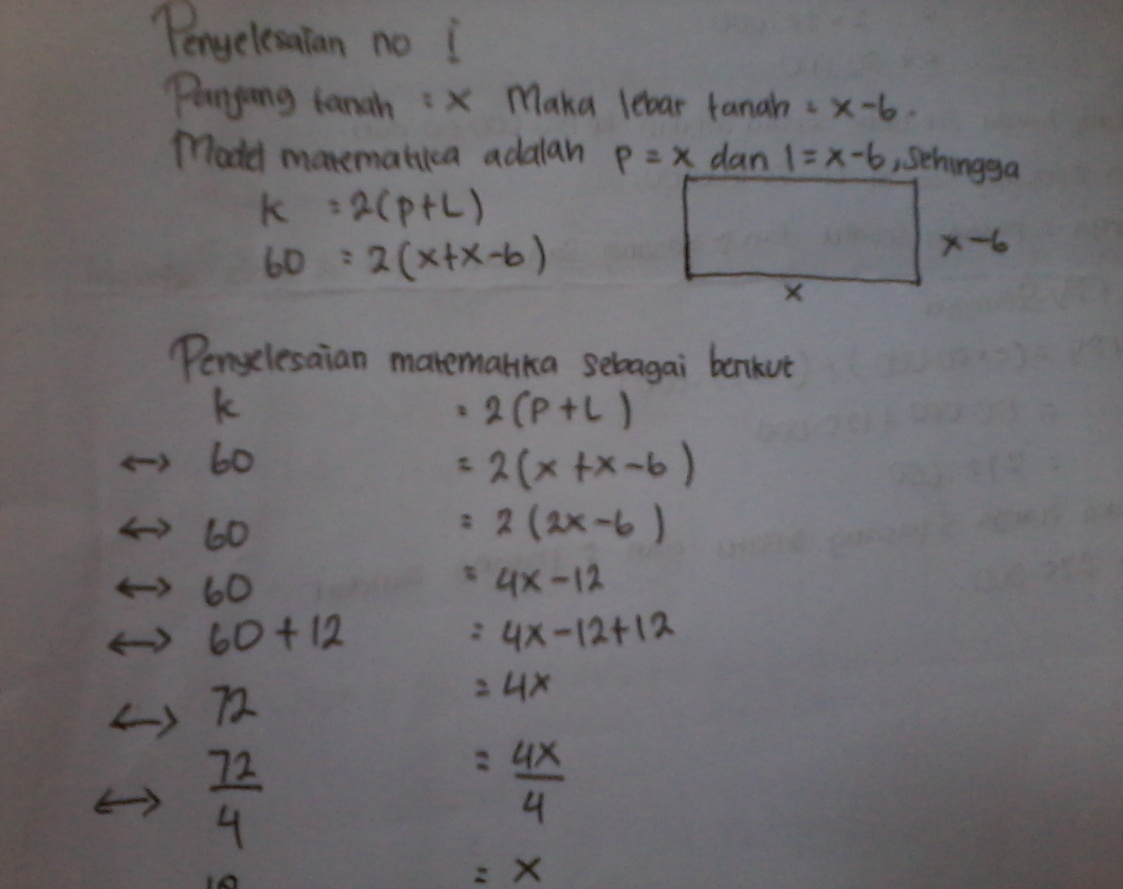 Penyelesaian no 1
Panjang tanah = x Maka lebar tanah = x-6.
Model matematika adalah p = x dan l = x-6, sehingga
k = 2(p+L)
60 = 2(x+x-6)
x-6
x
Penyelesaian matematika sebagai berikut
k = 2(p+L)
↔ 60 = 2(x+x-6)
↔ 60 = 2(2x-6)
↔ 60 = 4x-12
↔ 60+12 = 4x-12+12
↔ 72 = 4x
↔ 72/4 = 4x/4
= x